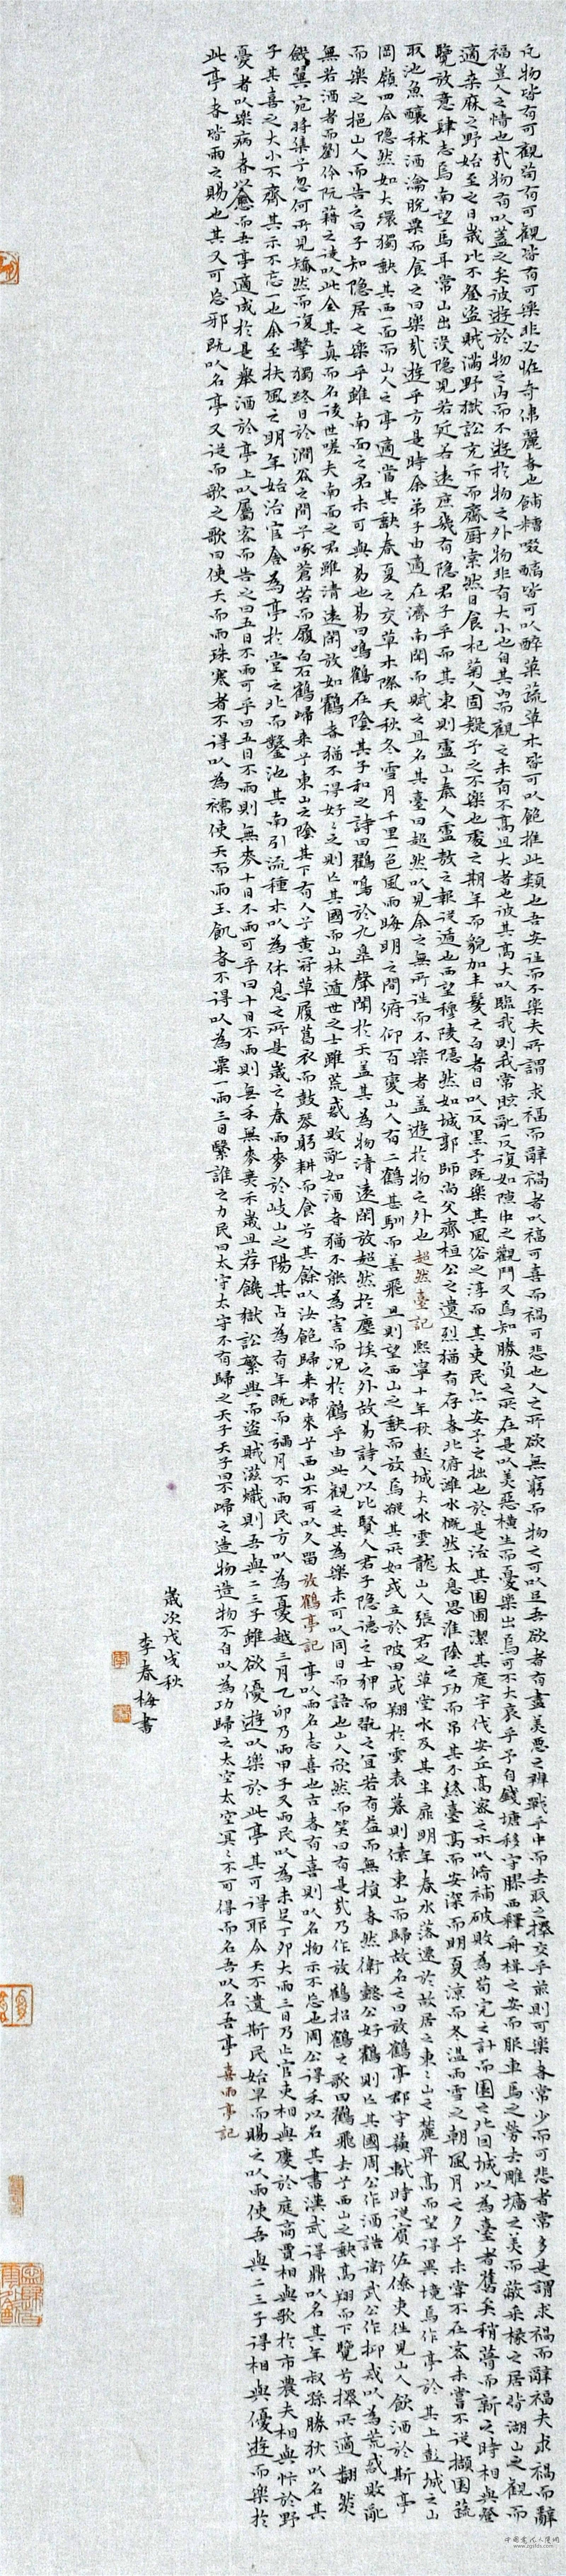 凡物皆有可觀苟有可觀皆有可樂非必怪奇偉麗者也餔糟啜醨皆可以醉菓蔬草木皆可以飽推此類也吾安往而不樂夫所謂求福而辭禍者以福可喜而禍可悲也人之所欲無窮而物之可以足吾欲者有盡美惡之辨戰乎中而去取之擇交乎前則可樂者常少而可悲者常多是謂求禍而辭福夫求禍而辭
福豈人之情也哉物有以蓋之矣彼遊於物之內而不遊於物之外物非有大小也自其內而觀之未有不高且大者也彼其高大以臨我則我常眩亂反復如隙中之觀鬥又烏知勝負之所在是以美惡橫生而憂樂出焉可不大哀乎予自錢塘移守膠西釋舟楫之安而服車馬之勞去雕墻之美而蔽采椽之居背湖山之觀而
適桑麻之野始至之日歲比不登盜賊滿野獄訟充斥而齋廚索然日食杞菊人固疑予之不樂也處之期年而貌加豐髮之白者日以反黑予既樂其風俗之淳而其吏民亦安予之拙也於是治其園圃潔其庭宇伐安丘高密之木以脩補破敗為苟完之計而園之北因城以為臺者舊矣稍葺而新之時相與登
覽放意肆志焉南望馬耳常山出沒隱見若近若遠庶幾有隱君子乎而其東則盧山秦人盧敖之所從遁也西望穆陵隱然如城郭師尚父齊桓公之遺烈猶有存者北俯濰水慨然太息思淮陰之功而吊其不終臺高而安深而明夏涼而冬溫雨雪之朝風月之夕予未嘗不在客未嘗不從擷園蔬
取池魚釀秫酒瀹脫粟而食之曰樂哉遊乎方是時余弟子由適在濟南聞而賦之且名其臺曰超然以見余之無所往而不樂者蓋遊於物之外也 超然臺記 熙寧十年秋彭城大水雲龍山人張君之草堂水及其半扉明年春水落遷於故居之東東山之麓昇高而望得異境焉作亭於其上彭城之山
岡嶺四合隱然如大環獨缺其西一面而山人之亭適當其缺春夏之交草木際天秋冬雪月千里一色風雨晦明之間俯仰百變山人有二鶴甚馴而善飛旦則望西山之缺而放焉縱其所如或立於陂田或翔於雲表暮則傃東山而歸故名之曰放鶴亭郡守蘇軾時從賓佐僚吏往見山人飲酒於斯亭
而樂之挹山人而告之曰子知隱居之樂乎雖南面之君未可與易也易曰鳴鶴在陰其子和之詩曰鶴鳴於九皋聲聞於天蓋其為物清遠閑放超然於塵埃之外故易詩人以比賢人君子隱德之士狎而玩之宜若有益而無損者然衛懿公好鶴則亡其國周公作酒誥衛武公作抑戒以為荒惑敗亂
無若酒者而劉伶阮籍之徒以此全其真而名後世嗟夫南面之君雖清遠閑放如鶴者猶不得好好之則亡其國而山林遁世之士雖荒惑敗亂如酒者猶不能為害而況於鶴乎由此觀之其為樂未可以同日而語也山人欣然而笑曰有是哉乃作放鶴招鶴之歌曰鶴飛去兮西山之缺高翔而下覽兮擇所適翻然
斂翼宛將集兮忽何所見矯然而復擊獨終日於澗谷之間兮啄蒼苔而履白石鶴歸來兮東山之陰其下有人兮黃冠草履葛衣而鼓琴躬耕而食兮其餘以汝飽歸來歸來兮西山不可以久留 放鶴亭記 亭以雨名志喜也古者有喜則以名物示不忘也周公得禾以名其書漢武得鼎以名其年叔孫勝狄以名其
子其喜之大小不齊其示不忘一也余至扶風之明年始治官舍為亭於堂之北而鑿池其南引流種木以為休息之所是歲之春雨麥於岐山之陽其占為有年既而彌月不雨民方以為憂越三月乙卯乃雨甲子又雨民以為未足丁卯大雨三日乃止官吏相與慶於庭商賈相與歌於市農夫相與忭於野
憂者以樂病者以愈而吾亭適成於是舉酒於亭上以屬客而告之曰五日不雨可乎曰五日不雨則無麥十日不雨可乎曰十日不雨則無禾無麥無禾歲且荐饑獄訟繁興而盜賊滋熾則吾與二三子雖欲優遊以樂於此亭其可得耶今天不遺斯民始旱而賜之以雨使吾與二三子得相與優遊而樂於
此亭者皆雨之賜也其又可忘邪既以名亭又從而歌之歌曰使天而雨珠寒者不得以為襦使天而雨玉飢者不得以為粟一雨三日繄誰之力民曰太守太守不有歸之天子天子曰不歸之造物造物不自以為功歸之太空太空冥冥不可得而名吾以名吾亭 喜雨亭記
歲次戊戌秋
李春梅書